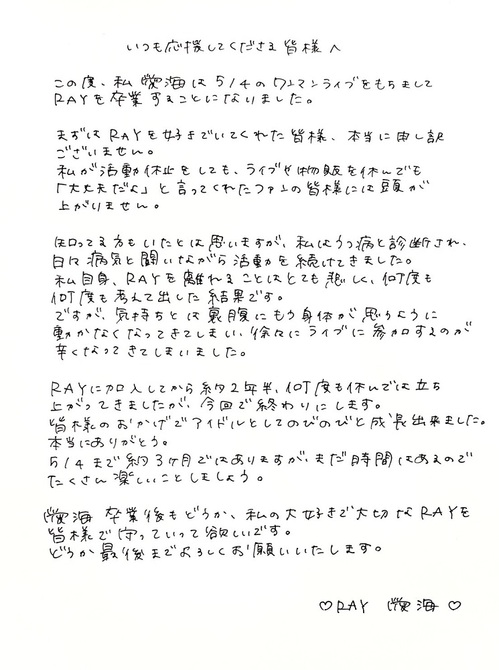 いつも応援してくださる皆様へ
この度、私 愬海は5/4のワンマンライブをもちまして
RAYを卒業することになりました。
まずはRAYを好きでいてくれた皆様、本当に申し訳
ございません。
私が活動休止をしても、ライブや物販を休んでも
「大丈夫だよ」と言ってくれたファンの皆様には頭が
上がりません。
知ってる方もいたとは思いますが、私はうつ病と診断され、
日々病気と闘いながら活動を続けてきました。
私自身、RAYを離れることはとても悲しく、何度も
何度も考えて出した結果です。
ですが、気持ちとは裏腹にもう身体が思うように
動かなくなってきてしまい、徐々にライブに参加するのが
辛くなってきてしまいました。
RAYに加入してから約2年半、何度も休んでは立ち
上がってきましたが、今回で終わりにします。
皆様のおかげでアイドルとしてのびのびと成長出来ました。
本当にありがとう。
5/4まで約3ヶ月ではありますが、まだ時間はあるので
たくさん楽しいことしましょう。
愬海 卒業後もどうか、私の大好きで大切なRAYを
皆様で守っていって欲しいです。
どうか最後までよろしくお願いいたします。
♡RAY 愬海♡